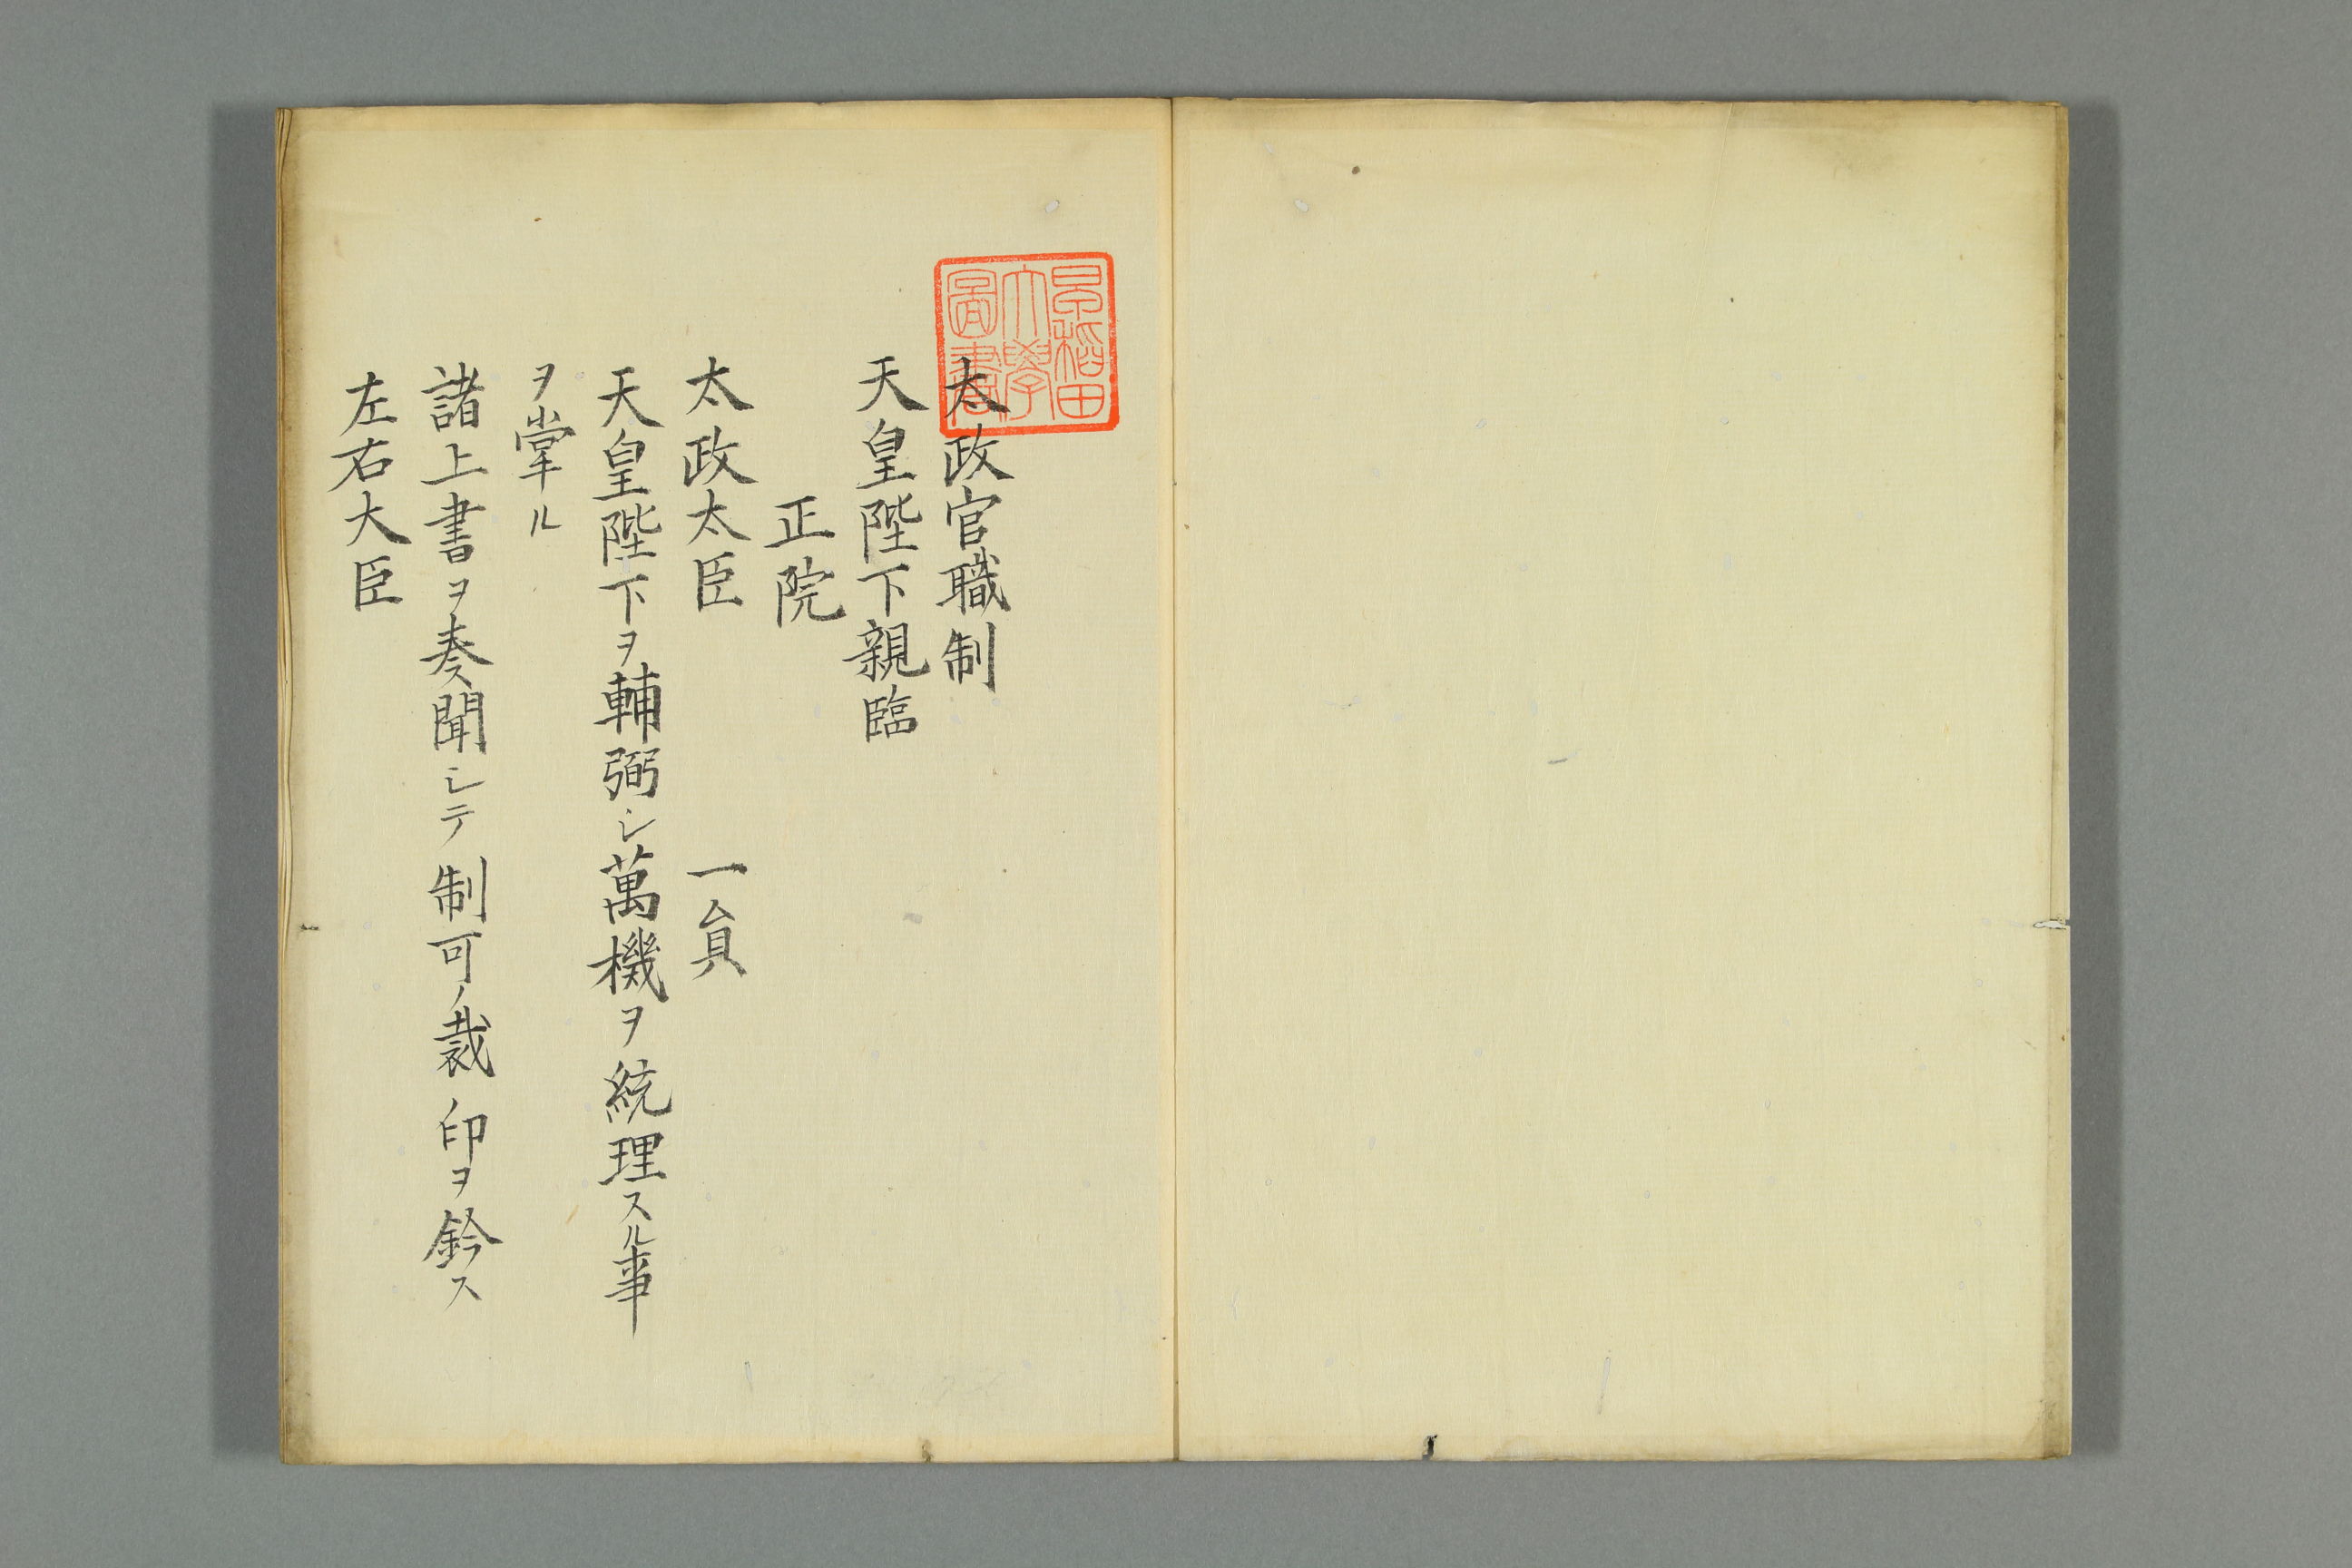 早稲田
大學
圖書
太政官職制
天皇陛下親臨
正院
太政太臣　一員
天皇陛下ヲ輔弼シ萬機ヲ統理スル事
ヲ掌ル
諸上書ヲ奏聞シテ制可ノ裁印ヲ鈐ス
左右大臣